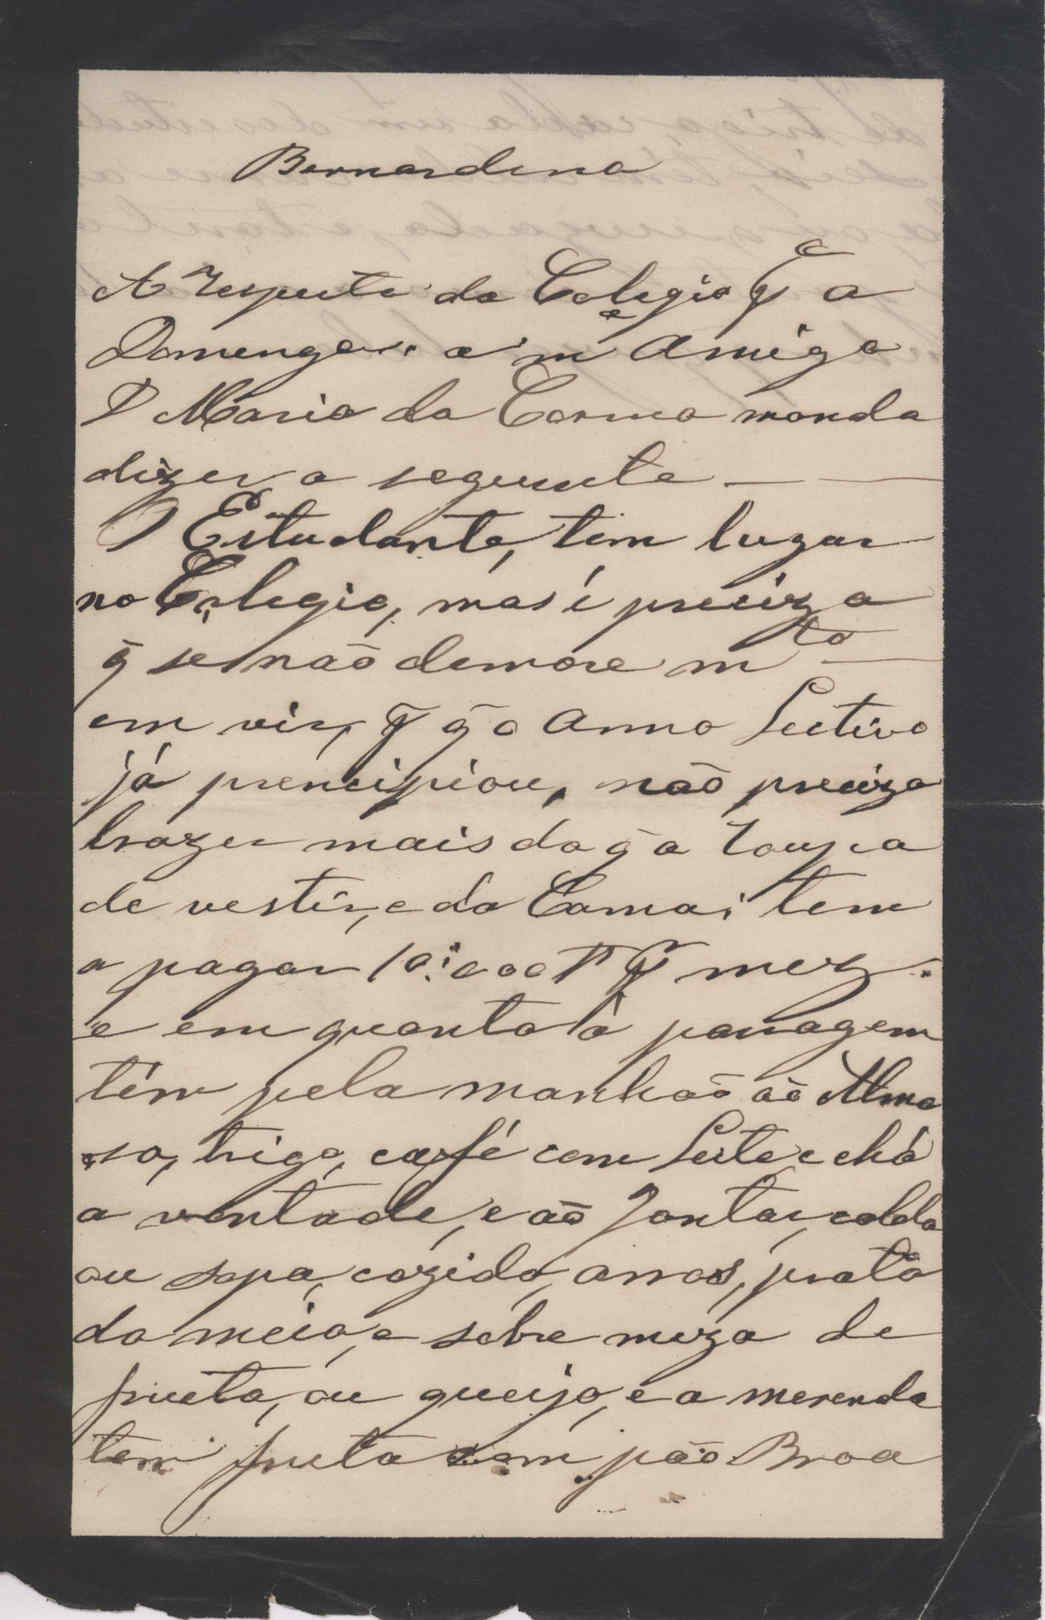 Bernardino
A respeito do Colegio pª o
Domengos. a mª Amiga
D Maria do Carmo manda
dizer o seguinte — —
O Estudante, tem lugar
no Colegio, mas é precizo
q̃ se não demore mto —
em vir, p q̃ o Anno Lectivo
já prencipiou, não preciza
trazer mais do q̃ a roupa
de vestir, e da Cama; tem
a pagar 10:000 rs p mez.
e em quanto á passagem
tem pela manhaõ aõ Almo
so, trigo, café com Leite e chá
a vontade, e aõ Jontar, caldo
ou sopa, cozido, arros, prato
do meio, e sobre meza de
fructa, ou queijo, e a merenda
tem fructa com pão Broa